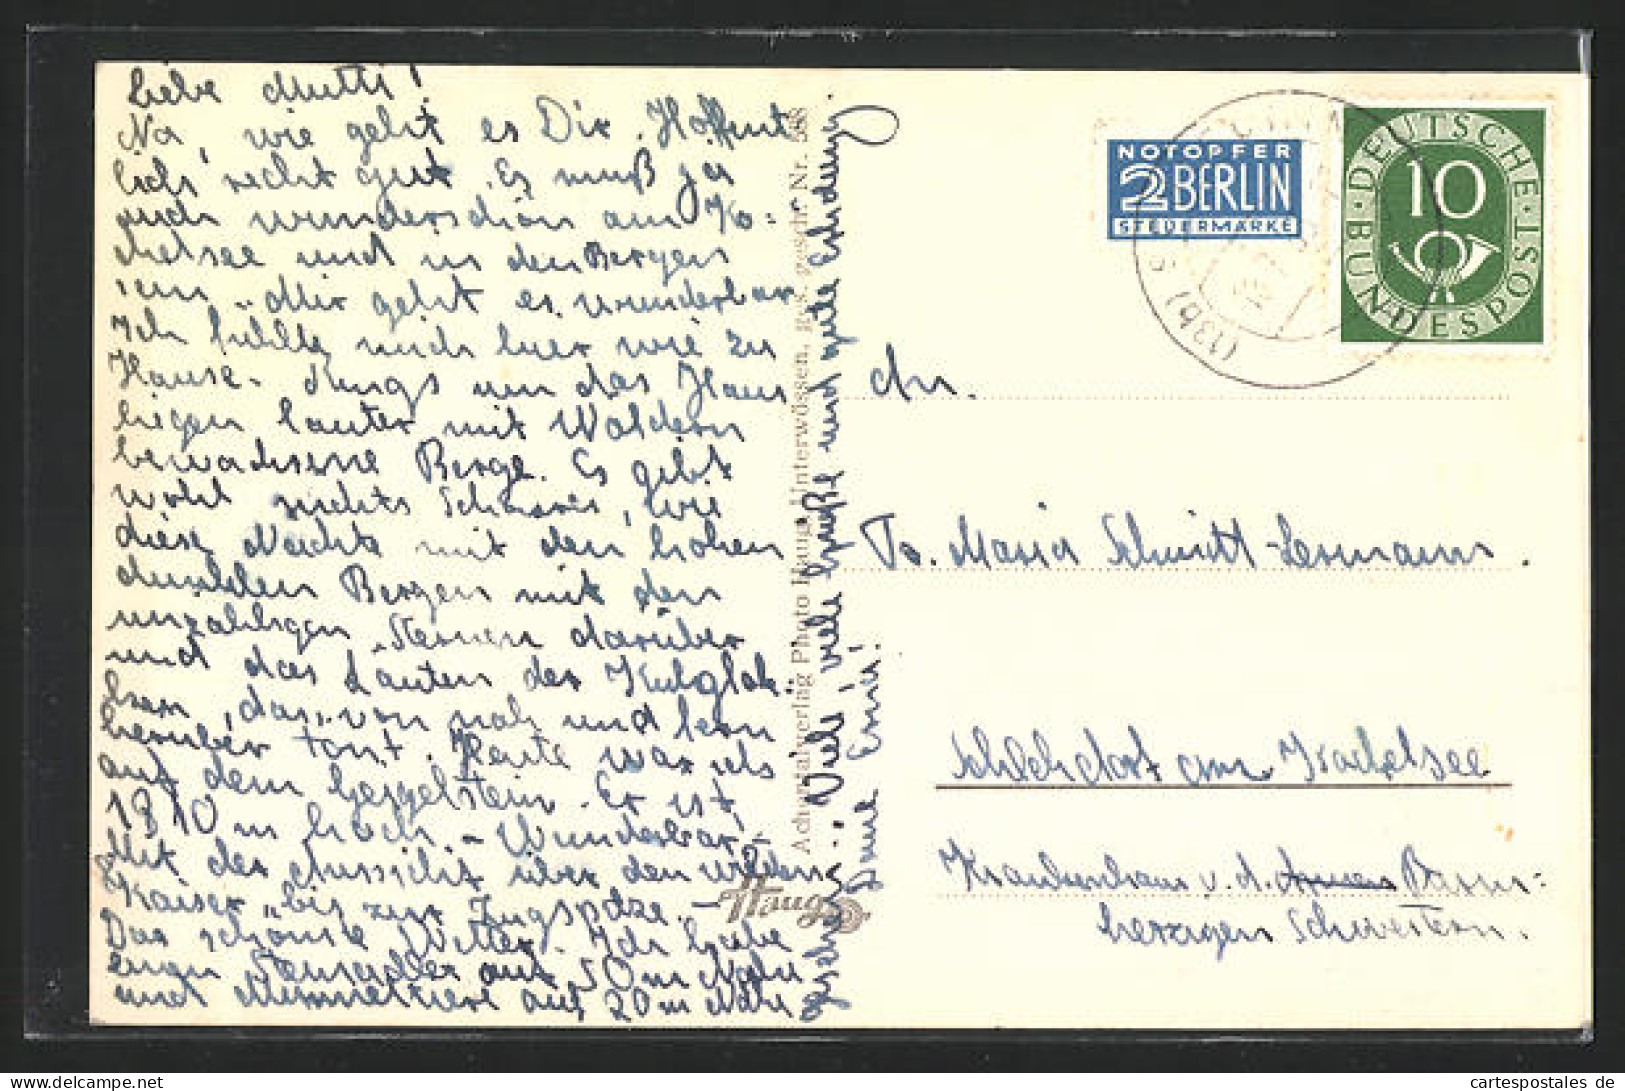 Liebe Mutti!
Na, wie geht es Dir. Hoffent
lich recht gut. Es muß ja
auch wunderschön am Ko=
chelsee und in den Bergen
sein. Mir geht es wunderbar.
Ich fühle mich hier wie zu
Hause. Rings um das Haus
liegen lauter mit Wäldern
bewachsene Berge. Es gibt
wohl nichts Schöneres, wie
diese Nächte mit den hohen
dunklen Bergen mit den
unzähligen Sternen darüber
und das Läuten der Kuhglok-
ken, das von nah und fern
herüber tönt. Heute war ich
auf dem Geigelstein. Er ist
1810 m hoch. - Wunderbar!
Mit der Aussicht über den wilden
Kaiser bis zur Zugspitze. -
Das schönste Wetter. Ich habe
einen Steinadler auf 50 m Nähe
und Murmeltiere auf 20 m Nähe
gesehen. Viele viele Grüße und gute Erholung
Deine Erni!
Photo Haug, Unterwössen, ges. gesch. Nr. 588
Haug
NOTOPFER
2 BERLIN
STEUERMARKE
DEUTSCHE BUNDESPOST
10
(13b)
An.
Maria Schmitt-Lermann.
Schlehdorf am Kochelsee
Krankenhaus v. d. Armen Barm=
herzigen Schwestern.
cartespostales de